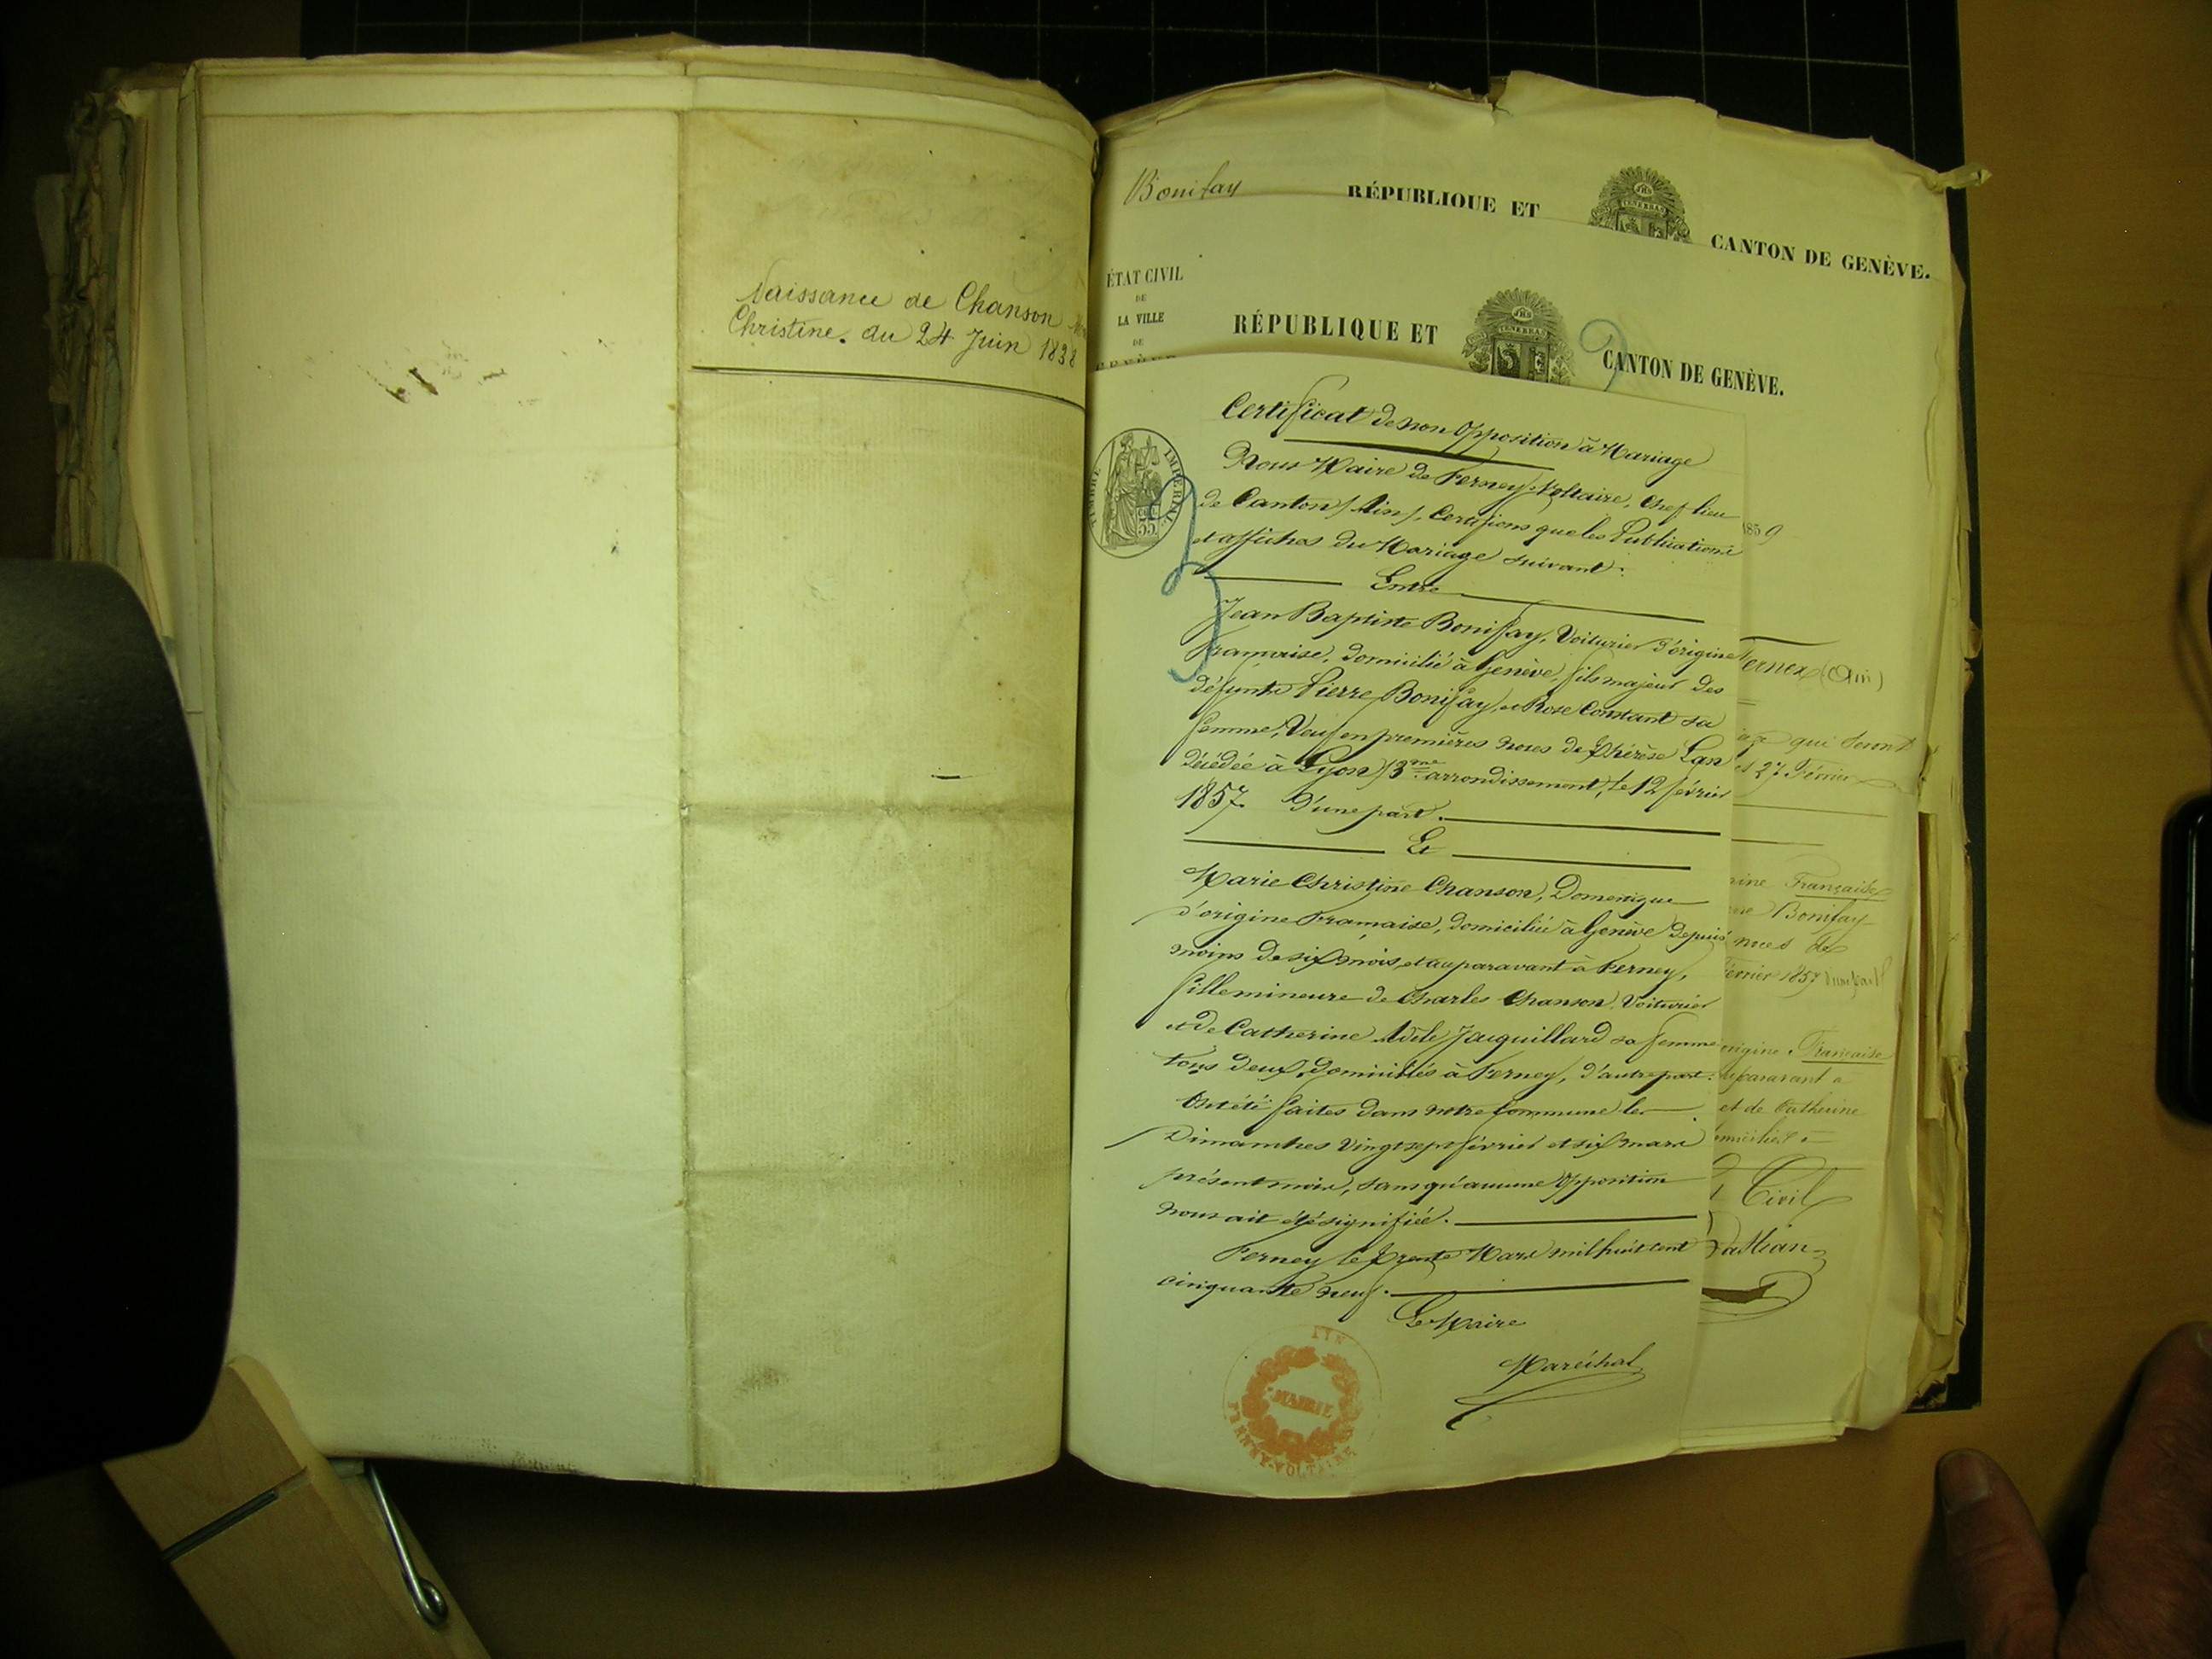 Naissance de Chanson
Christine. du 24 Juin 1838
Bonifay
RÉPUBLIQUE ET CANTON DE GENÈVE.
ÉTAT CIVIL
DE
LA VILLE
DE
GENÈVE
RÉPUBLIQUE ET CANTON DE GENÈVE.
Certificat de non Opposition à Mariage
TIMBRE IMPÉRIAL
Nous Maire de Ferney-Voltaire, Chef lieu
de Canton (Ain), Certifions que les Publications
et affiches du Mariage suivant :
Entre
Jean Baptiste Bonifay, Voiturier d'origine
française, domicilié à Genève, fils majeur des
défunts Pierre Bonifay, et Rose Constant sa
femme, Veuf en premières noces de Thérèse Lan
décédée à Lyon (3eme arrondissement), le 12 février
1857. D'une part.
Et
Marie Christine Chanson, Domestique
d'origine Française, domiciliée à Genève depuis
moins de six mois, et auparavant à Ferney,
fille mineure de Charles Chanson, Voiturier
et de Catherine Adèle Jacquillard sa femme
tous deux domiciliés à Ferney, d'autre part.
Ont été faites dans notre Commune les
Dimanches Vingt sept février et six mars
présent mois, sans qu'aucune Opposition
nous ait été signifiée.
Ferney le trente Mars mil huit cent
cinquante neuf.
Le Maire
Maréchal
MAIRIE
FERNEY-VOLTAIRE
AIN
1859
Fernex (Ain)
qui seront
27 Février
Française
Bonifay
de
février 1857 d'une part
origine Française
auparavant à
et de Catherine
domiciliés à
Civil